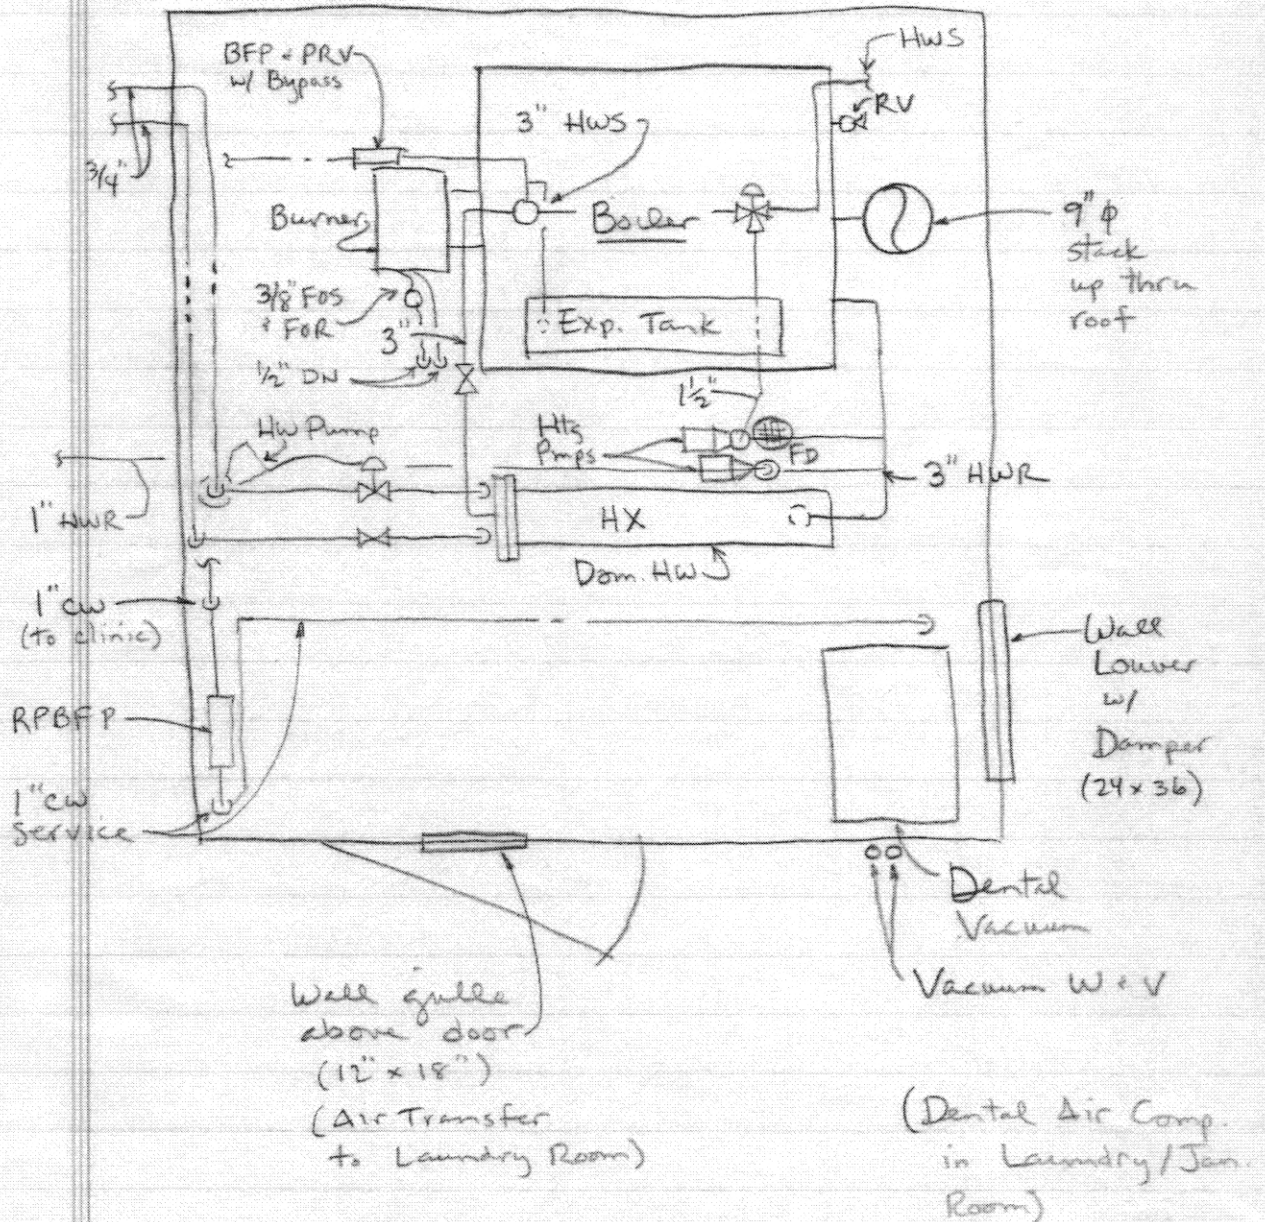 BFP & PRV
w/ Bypass
HWS
RV
3" HWS
3/4"
Burner
Boiler
9" φ
stack
up thru
roof
3/8" FOS
& FOR
3"
Exp. Tank
1/2" DN
1 1/2"
HW Pump
Htg
Pmps
FD
3" HWR
1" HWR
HX
Dom. HW
1" CW
(to clinic)
Wall
Louver
w/
Damper
(24 x 36)
RPBFP
1" CW
Service
Dental
Vacuum
Vacuum W & V
Wall grille
above door
(12" x 18")
(Air Transfer
to Laundry Room)
(Dental Air Comp.
in Laundry/Jan.
Room)